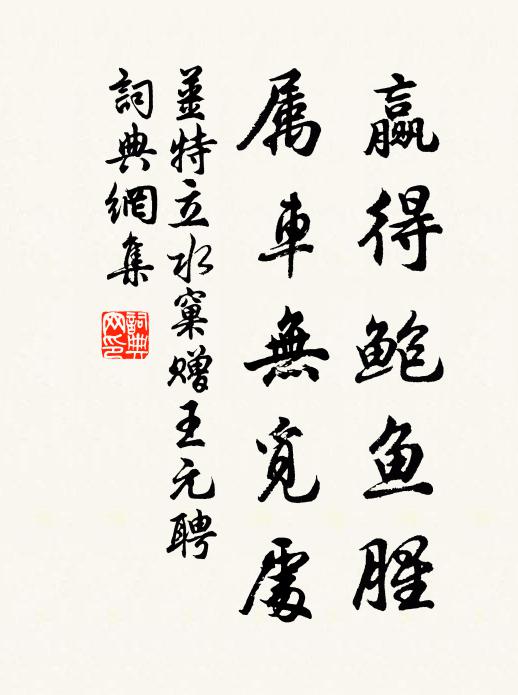 赢得鲍鱼腥
属車無覓處
姜特立水窠赠王元聘
詞典網集
詞典網印